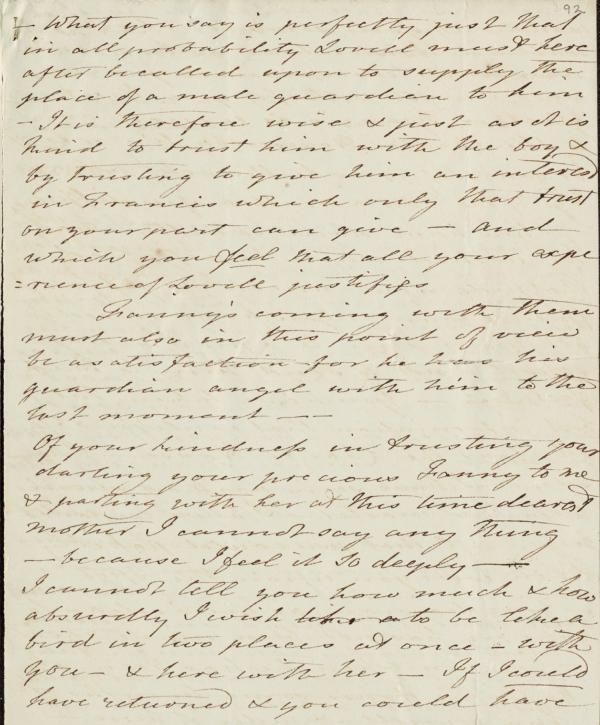 92
- What you say is perfectly just that
in all probability Lovell must here
after be called upon to supply the
place of a male guardian to him
- It is therefore wise & just as it is
kind to trust him with the boy &
by trusting to give him an interest
in Francis which only that trust
on your part can give - and
which you feel that all your expe
=rience of Lovell justifies
Fanny's coming with them
must also in this point of view
be a satisfaction for he has his
guardian angel with him to the
last moment --
Of your kindness in trusting your
darling your precious Fanny to me
& parting with her at this time dearest
mother I cannot say any thing
- because I feel it so deeply -
I cannot tell you how much & how
absurdly I wish to be like a
bird in two places at once - with
you - & here with her - If I could
have returned & you could have